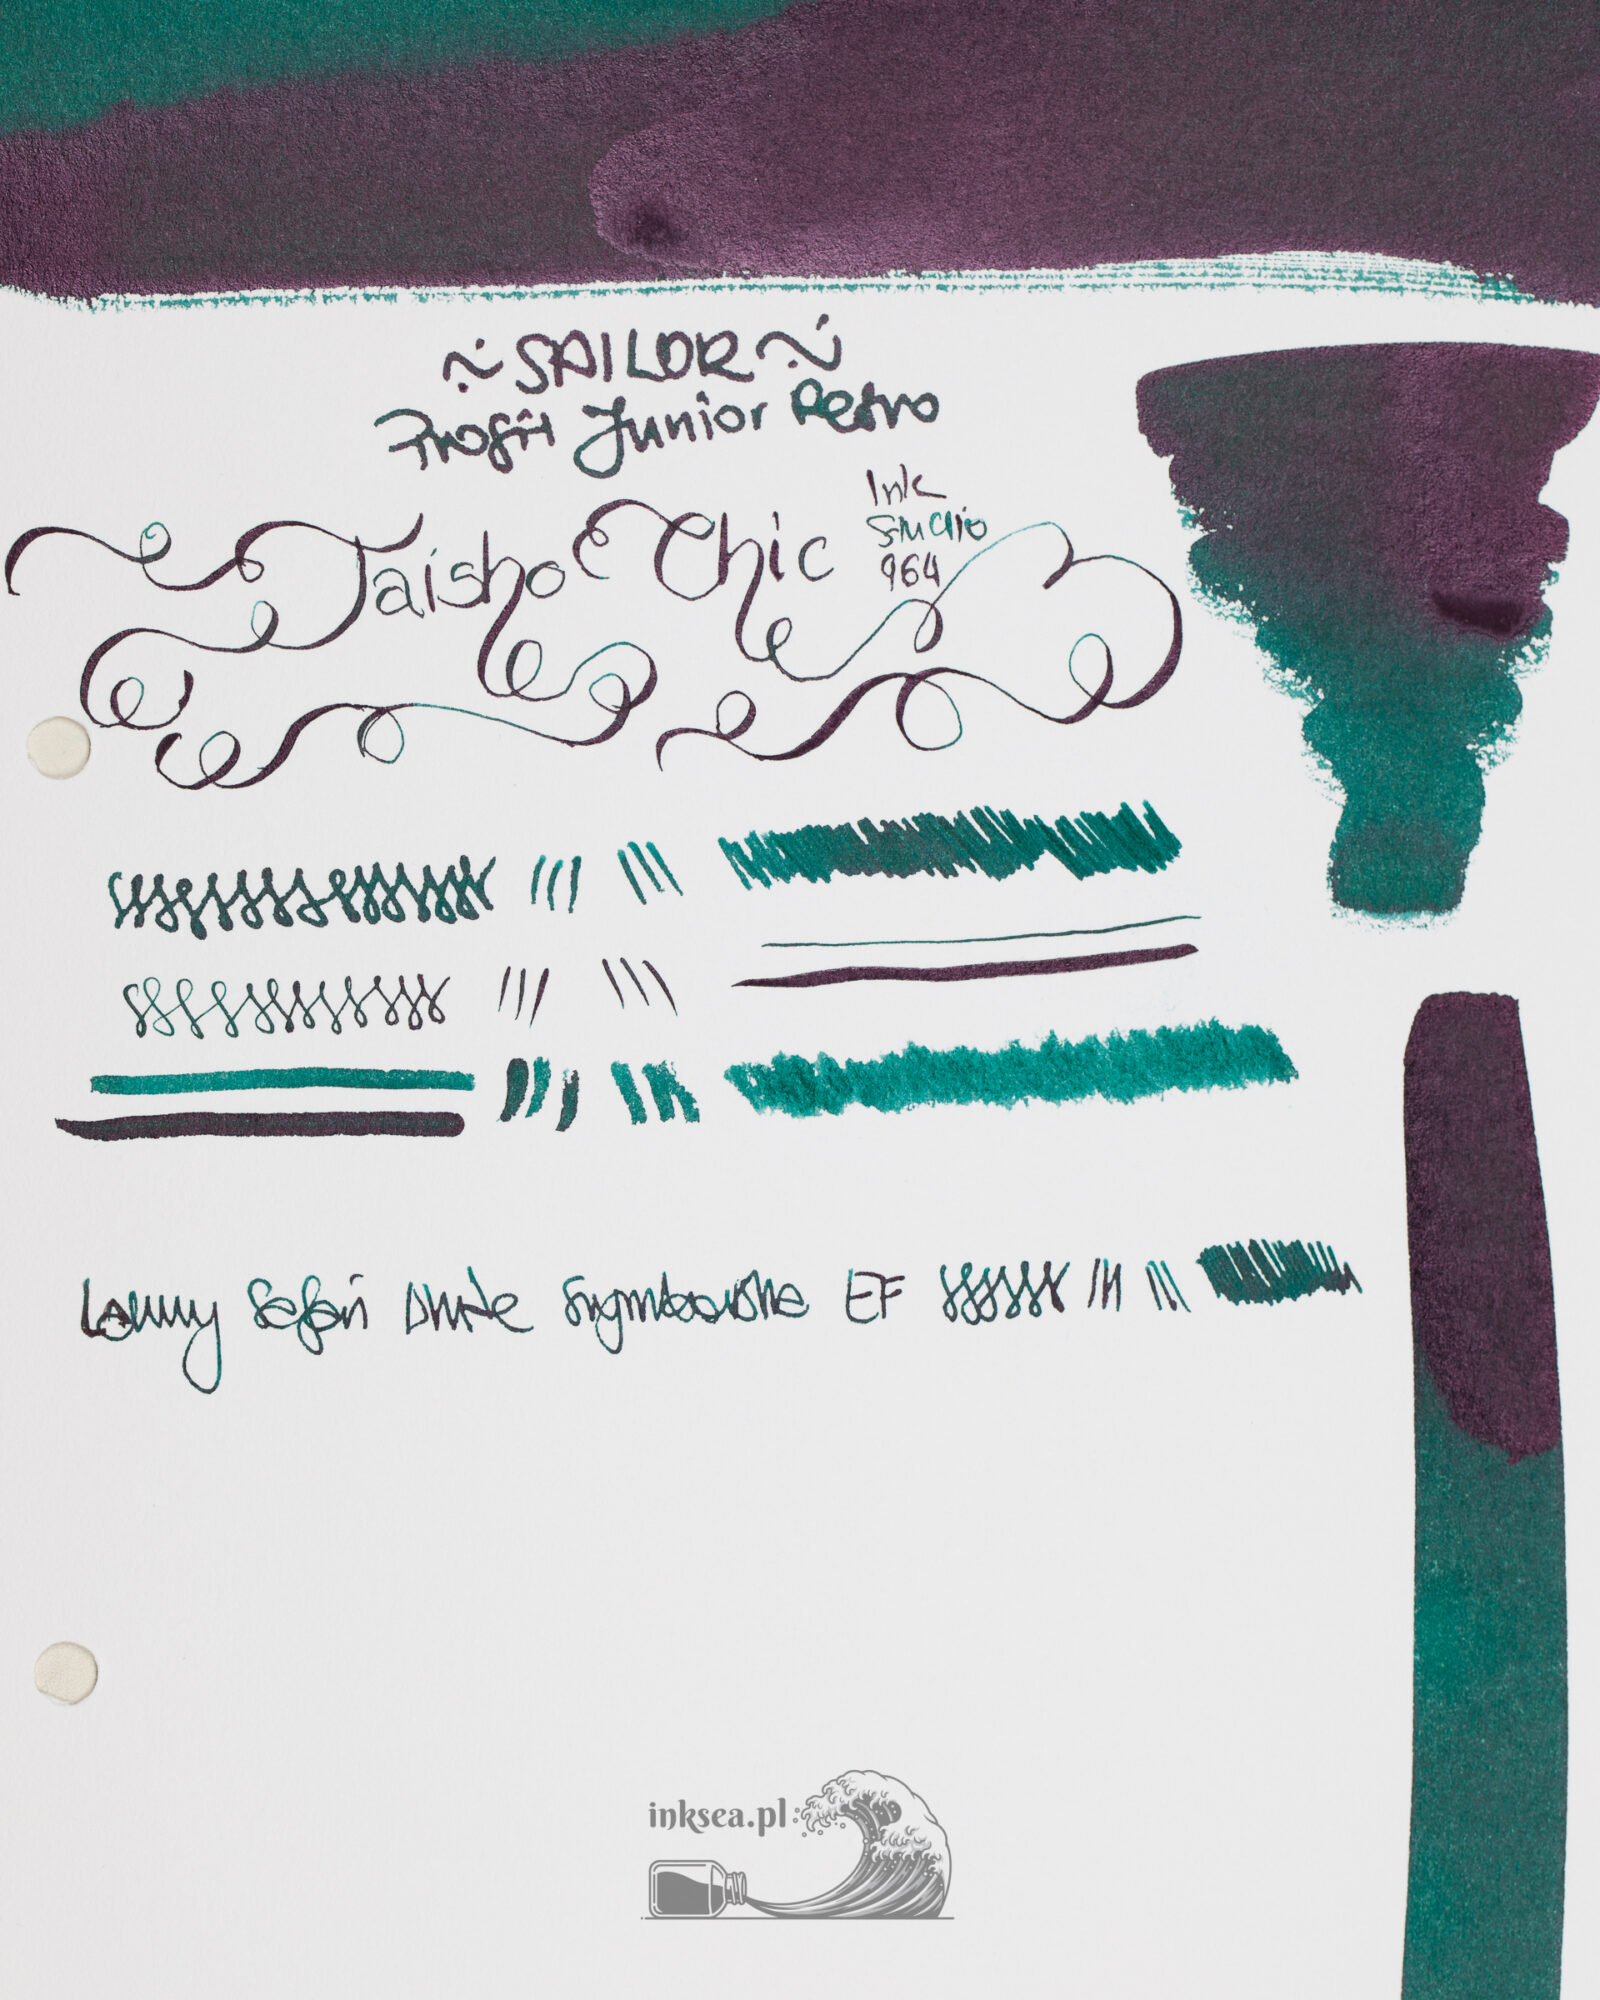 ~ SAILOR ~
Profit Junior Retro
Taisho Chic
Ink
Studio
964
Lamy Safari EF
inksea.pl